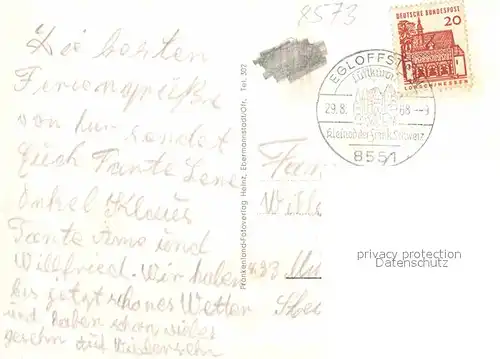 8573
Die besten
Feriengrüße
von hier sendet
Euch Tante Lene
Onkel Klaus
Tante Anna und
Willfried. Wir haben
bis jetzt schönes Wetter
und haben schon vieles
gesehn auf Wiedersehn
Fränkenland-Fotoverlag Heinz, Ebermannstadt/Ofr. Tel. 302
DEUTSCHE BUNDESPOST
20
LORSCH/HESSEN
EGLOFFST
Luftkurort
29.8. 68-9
Kleinod der Fränk. Schweiz
8551
Fam
433 Mü
privacy protection
Datenschutz